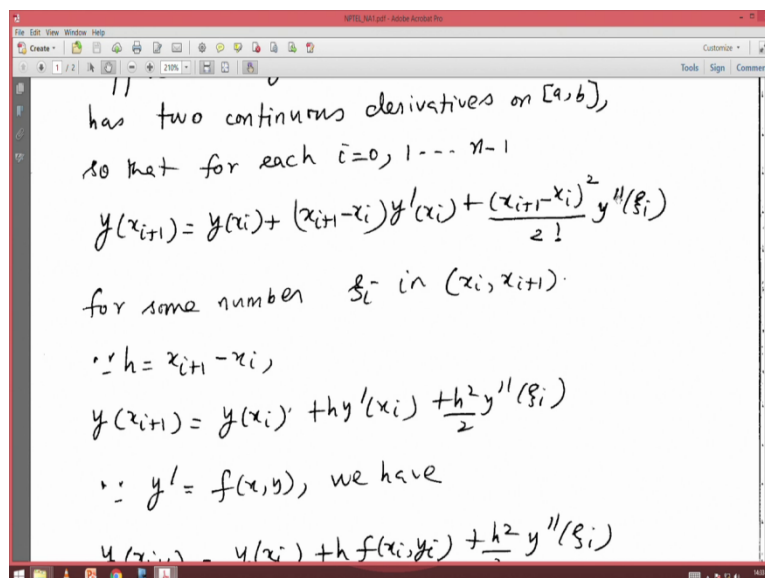 NPTEL_NA1.pdf - Adobe Acrobat Pro
File Edit View Window Help
Create Customize
1 / 2 210% Tools Sign Commen
has two continuous derivatives on [a,b],
so that for each i=0, 1 --- n-1
y(x_{i+1}) = y(x_i) + (x_{i+1}-x_i) y'(x_i) + (x_{i+1}-x_i)^2/2! y''(ξ_i)
for some number ξ_i in (x_i, x_{i+1}).
∵ h = x_{i+1} - x_i,
y(x_{i+1}) = y(x_i) + hy'(x_i) + h^2/2 y''(ξ_i)
∵ y' = f(x,y), we have
y(x_{i+1}) = y(x_i) + h f(x_i,y_i) + h^2/2 y''(ξ_i)